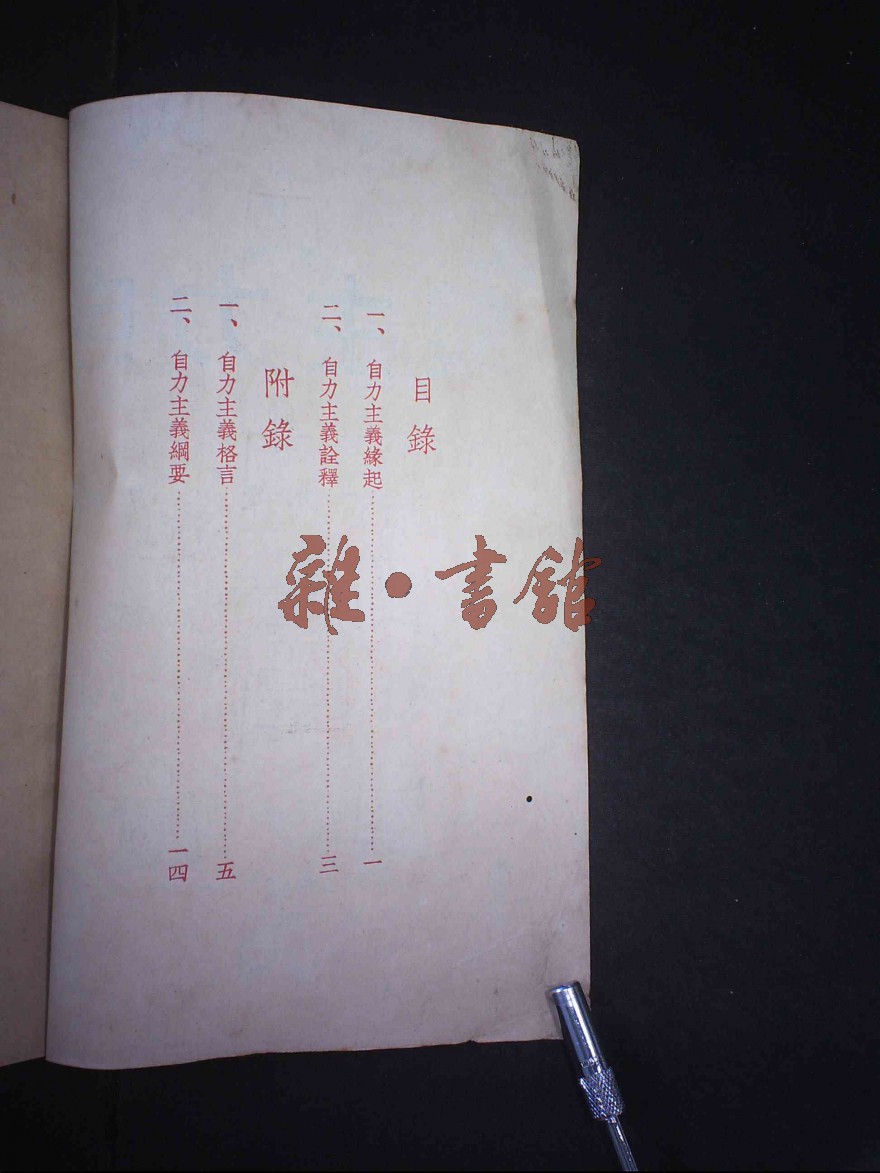 目錄
一、自力主義緣起……一
二、自力主義詮釋……三
附錄
一、自力主義格言……五
二、自力主義綱要……一四
雜·書館